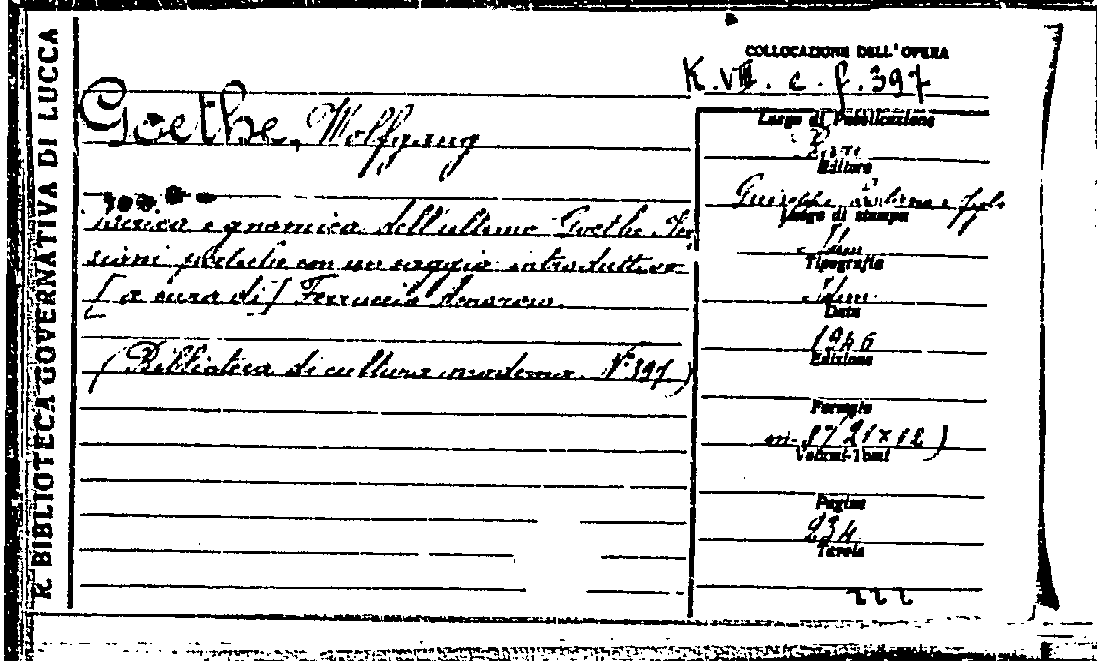 R. BIBLIOTECA GOVERNATIVA DI LUCCA
COLLOCAZIONE DELL'OPERA
K.VIII. c. f. 397
Goethe, Wolfgang
lirica e gnomica dell'ultimo Goethe. Ver
sioni poetiche con un saggio introduttivo
[a cura di] Ferruccio Amoroso.
(Biblioteca di cultura moderna. N. 397)
Luogo di Pubblicazione
Bari
Editore
Giuseppe Laterza e figli
Luogo di stampa
Idem
Tipografia
Idem
Data
1946
Edizione
Formato
in-8°(21×12)
Volumi-Tomi
Pagine
234
Tavole